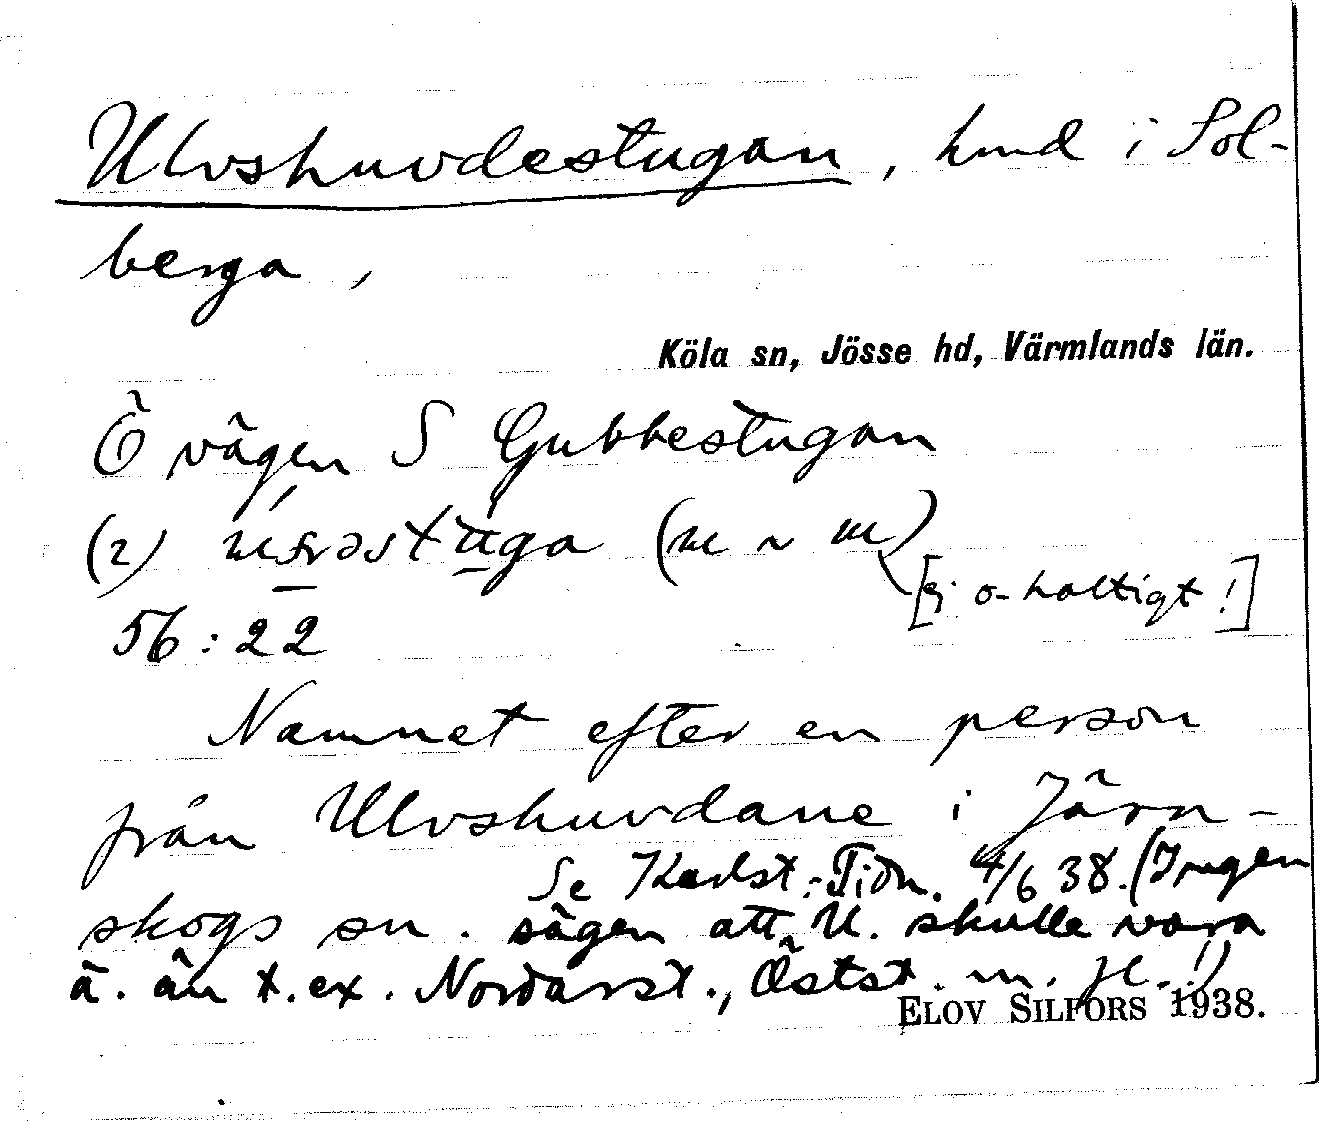 Ulvshuvdestugan, hmd i Sol-
berga,
Köla sn, Jösse hd, Värmlands län.
Ö vägen S Gubbestugan
(2)
[ej o-haltigt!]
56:22
Namnet efter en person
från Ulvshuvdane i Järn-
skogs sn. Se Karlst.-Tidn. 4/6 38. (Ingen
sägen att U. skulle vara
ä. än t.ex. Nordarst., Östst. m. fl.!)
ELOV SILFORS 1938.